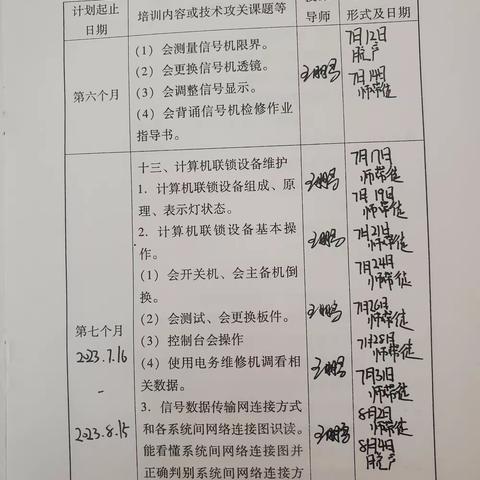 计划起止
日期
培训内容或技术攻关课题等
导师
形式及日期
第六个月
（1）会测量信号机限界。
（2）会更换信号机透镜。
（3）会调整信号显示。
（4）会背诵信号机检修作业
指导书。
7月12日
脱产
7月14日
师带徒
第七个月
2023.7.16
-
2023.8.15
十三、计算机联锁设备维护
1. 计算机联锁设备组成、原
理、表示灯状态。
2. 计算机联锁设备基本操
作。
（1）会开关机、会主备机倒
换。
（2）会测试、会更换板件。
（3）控制台会操作
（4）使用电务维修机调看相
关数据。
3. 信号数据传输网连接方式
和各系统间网络连接图识读。
能看懂系统间网络连接图并
正确判别系统间网络连接方
7月17日
师带徒
7月19日
师带徒
7月21日
师带徒
7月24日
师带徒
7月26日
师带徒
7月28日
师带徒
7月31日
师带徒
8月2日
师带徒
8月4日
脱产